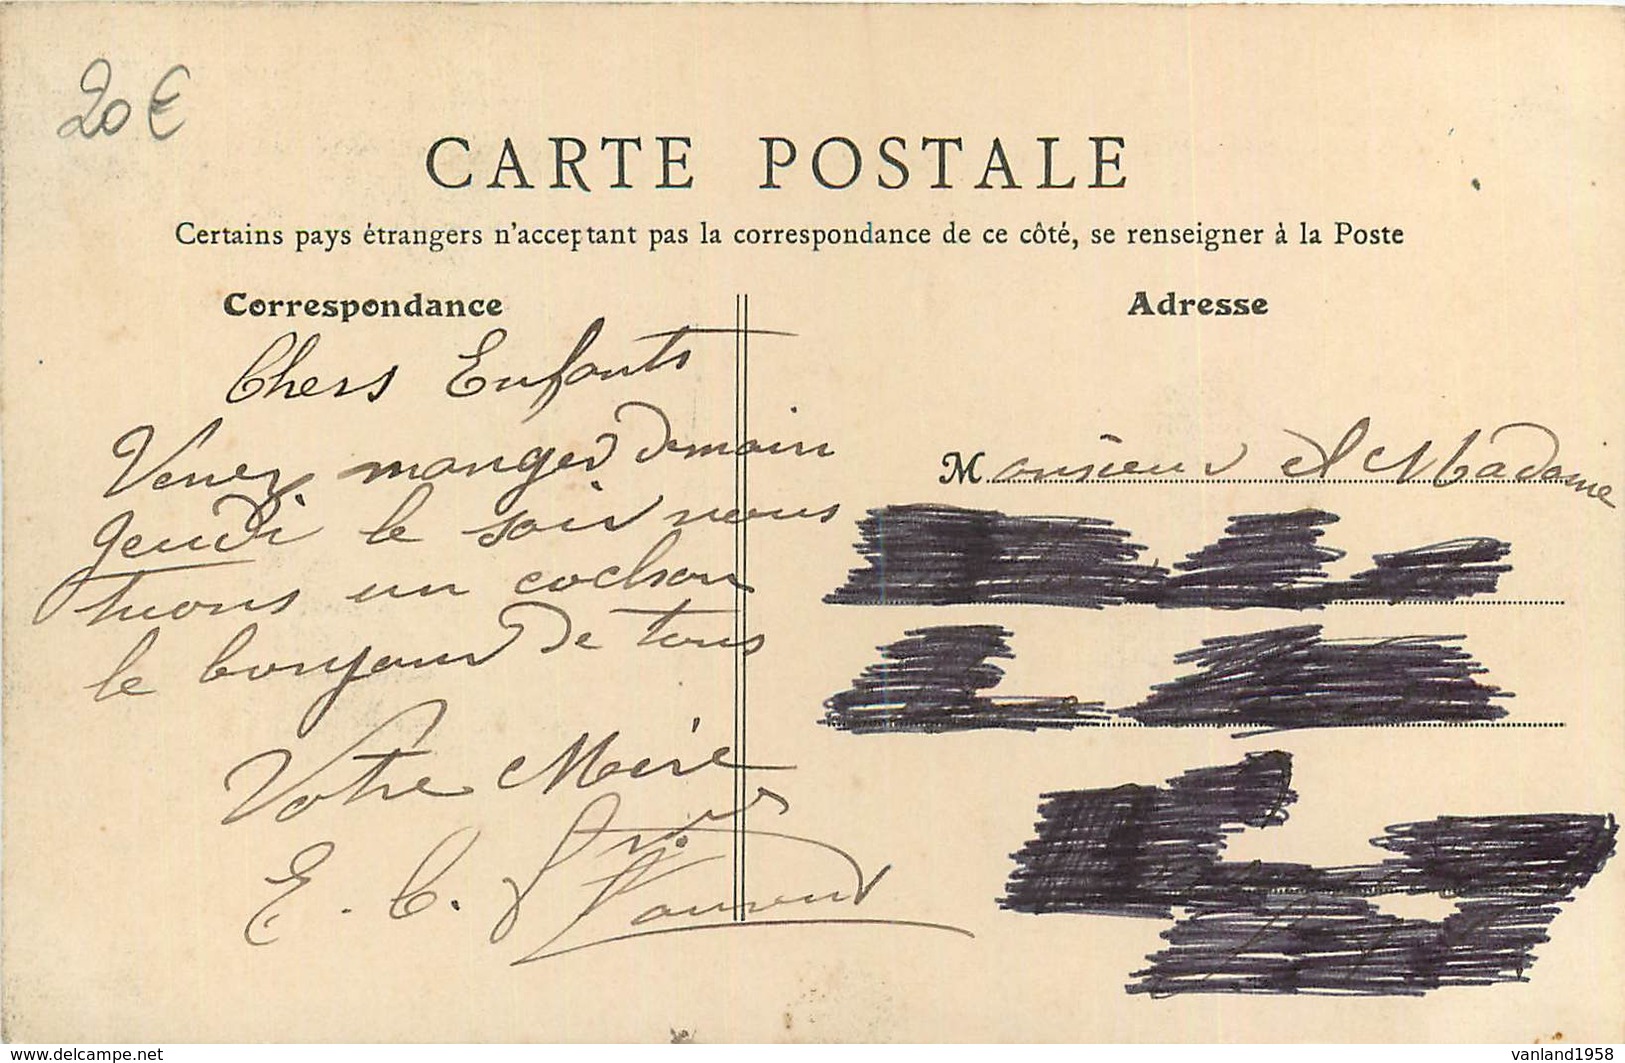 20 €
CARTE POSTALE
Certains pays étrangers n'acceptant pas la correspondance de ce côté, se renseigner à la Poste
Correspondance
Adresse
Chers Enfants
Venez manger demain
jeudi le soir nous
tuons un cochon
le bonjour de tous
Votre Mère
E. C.
Laurent
Monsieur et Madame
www.delcampe.net
vanland1958